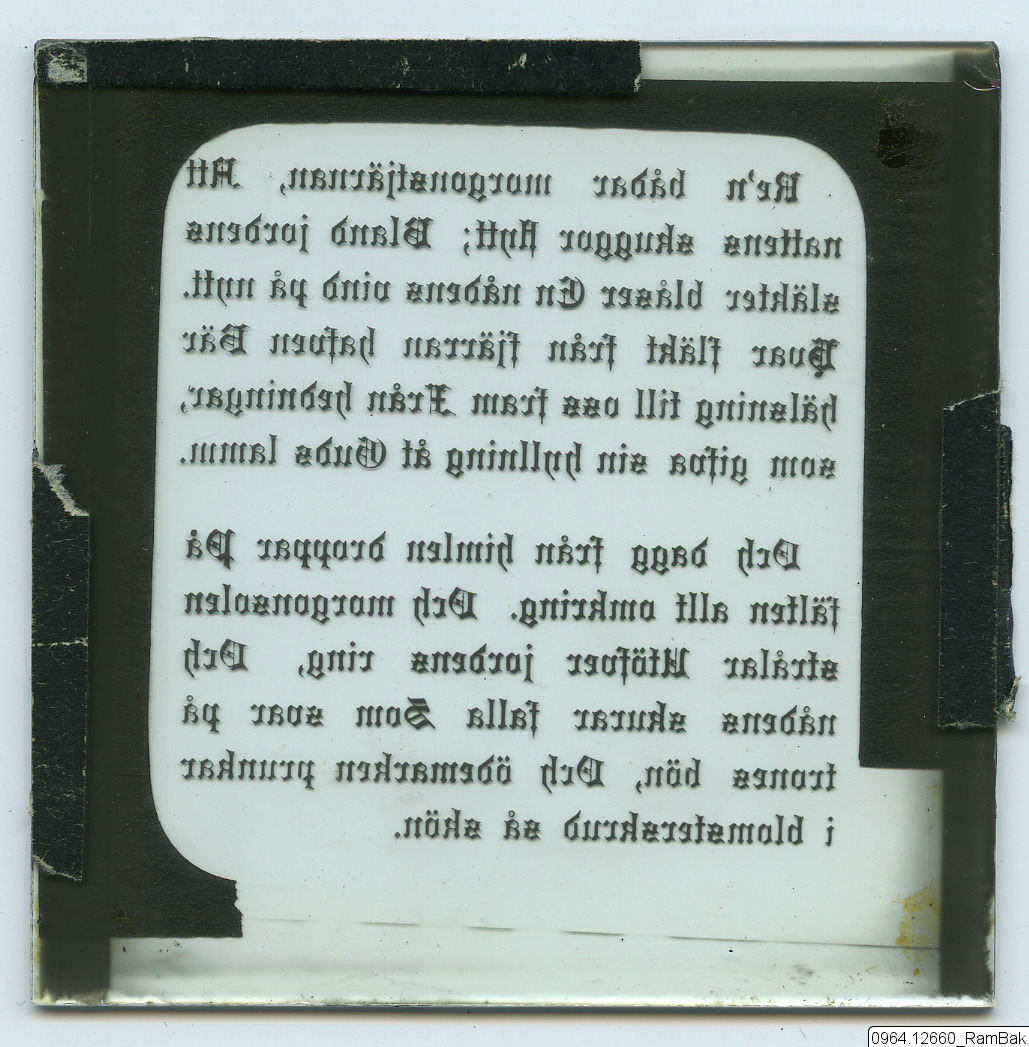 Re'n bådar morgonstjärnan, Att
nattens skuggor flytt; Bland jordens
släkter blåser En nådens vind på nytt.
Hvar fläkt från fjärran hafven Bär
hälsning till oss fram Från hedningar,
som gifva sin hyllning åt Guds lamm.
Och dagg från himlen droppar På
fälten allt omkring. Och morgonsolen
strålar Utöfver jordens ring, Och
nådens skurar falla Som svar på
trones bön, Och ödemarken prunkar
i blomsterskrud så skön.
0964.12660_RamBak